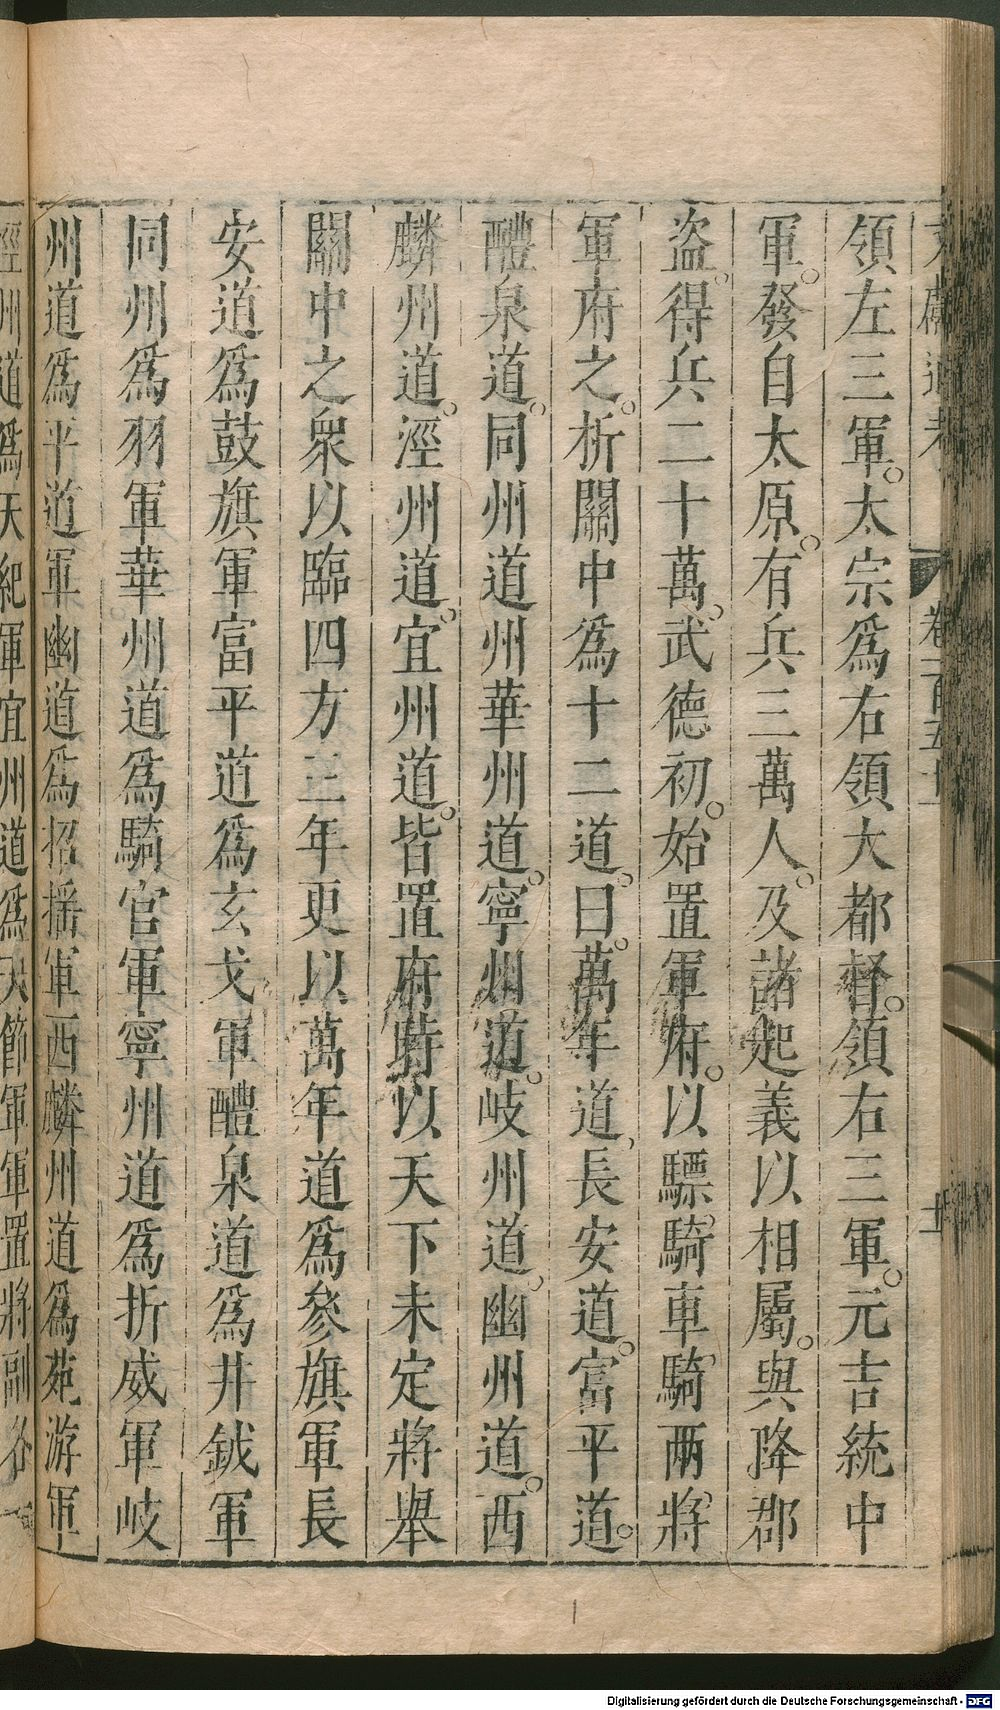 領左三軍。太宗爲右領大都督。領右三軍。元吉統中
軍。發自太原。有兵三萬人。及諸起義以相屬。與降郡
盜。得兵二十萬。武德初。始置軍府。以驃騎車騎兩將
軍府之。析關中爲十二道。曰。萬年道、長安道。富平道。
醴泉道。同州道州華州道。寧州道。岐州道。幽州道。西
麟州道。涇州道。宜州道。皆置府時以天下未定將舉
關中之衆以臨四方三年更以萬年道爲參旗軍長
安道爲鼓旗軍富平道爲玄戈軍醴泉道爲井鉞軍
同州爲羽軍華州道爲騎官軍寧州道爲折威軍岐
州道爲平道軍幽道爲招揺軍西麟州道爲苑游軍
涇州道爲天紀軍宜州道爲天節軍軍置將副各一
Digitalisierung gefördert durch die Deutsche Forschungsgemeinschaft - DFG